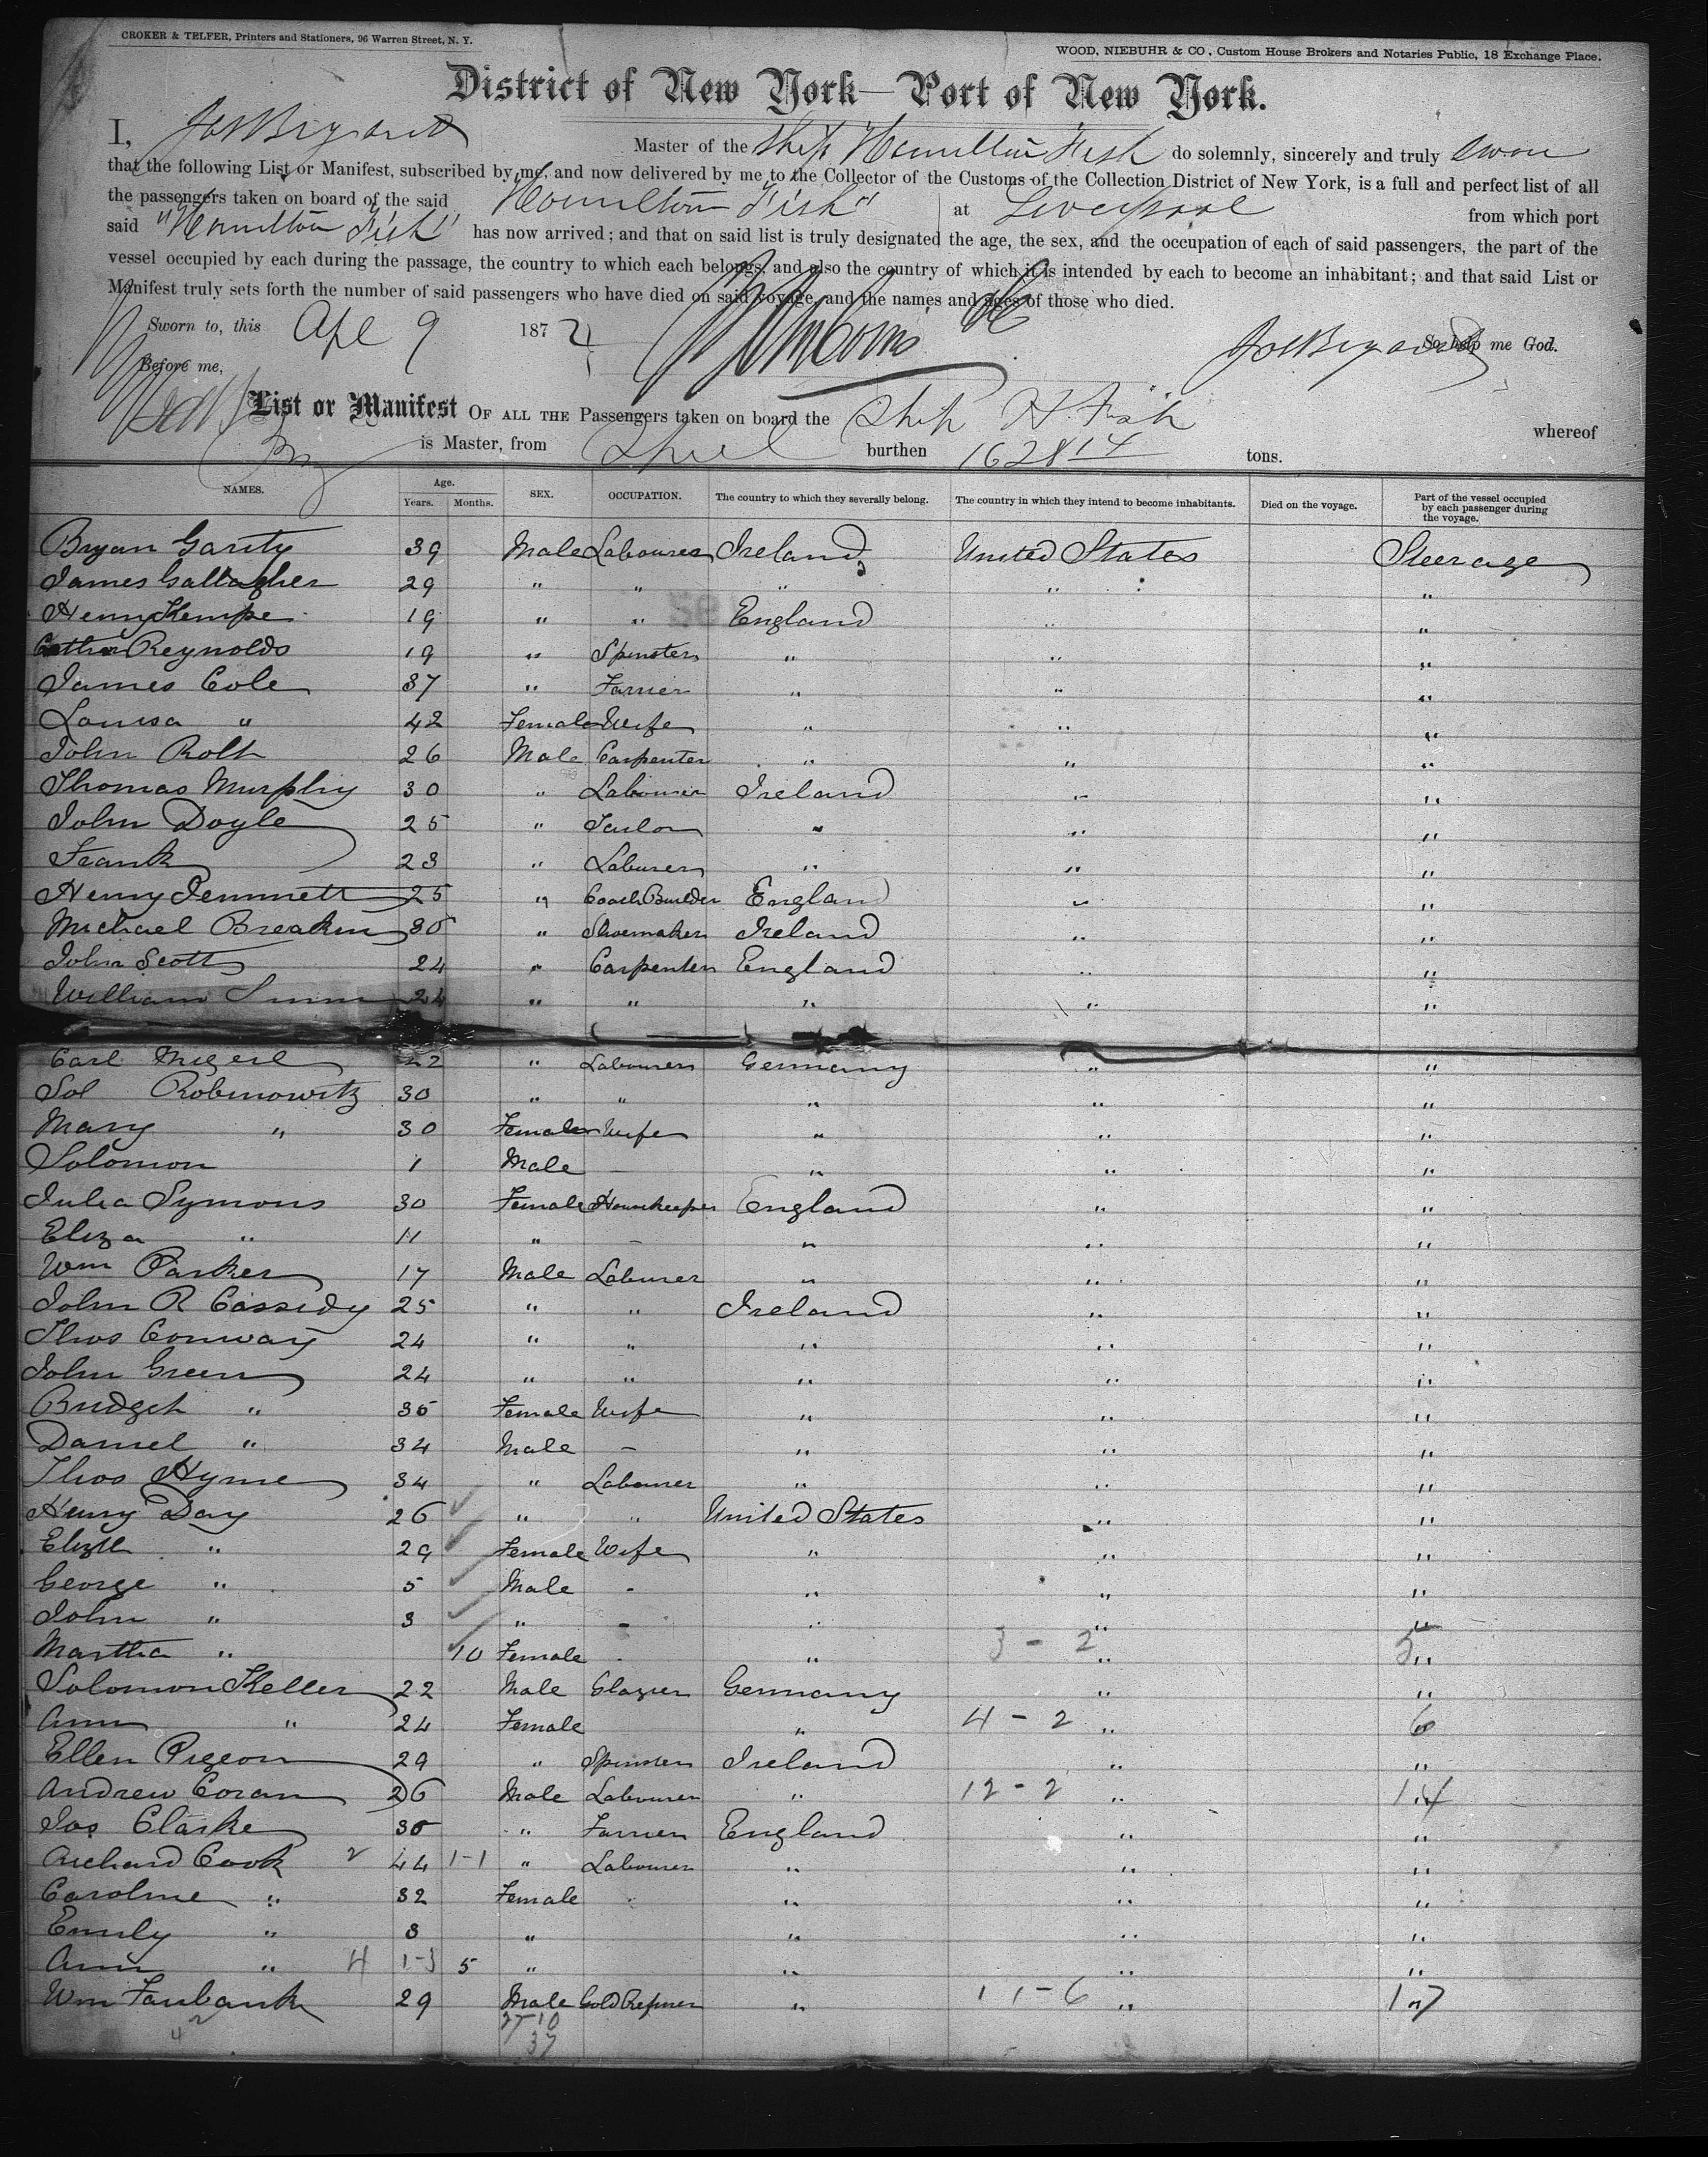 CROKER & TELFER, Printers and Stationers, 96 Warren Street, N. Y.
WOOD, NIEBUHR & CO., Custom House Brokers and Notaries Public, 18 Exchange Place.
District of New York—Port of New York.
I, Master of the Ship "Hamilton Fish do solemnly, sincerely and truly swear
that the following List or Manifest, subscribed by me, and now delivered by me to the Collector of the Customs of the Collection District of New York, is a full and perfect list of all
the passengers taken on board of the said Hamilton Fish" at Liverpool from which port
said "Hamilton Fish" has now arrived; and that on said list is truly designated the age, the sex, and the occupation of each of said passengers, the part of the
vessel occupied by each during the passage, the country to which each belongs, and also the country of which it is intended by each to become an inhabitant; and that said List or
Manifest truly sets forth the number of said passengers who have died on said voyage, and the names and ages of those who died.
Sworn to, this Apl 9 187
So help me God.
Before me,
List or Manifest OF ALL THE Passengers taken on board the Ship H. Fish whereof
is Master, from burthen 1628 14 tons.
NAMES. Age. Years. Months. SEX. OCCUPATION. The country to which they severally belong. The country in which they intend to become inhabitants. Died on the voyage. Part of the vessel occupied by each passenger during the voyage.
Bryan Garity 39 Male Labourer Ireland United States Steerage
James Gallagher 29 " " " " "
Henry Kempe 19 " " England " "
Reynolds 19 " Spinster " " "
James Cole 37 " Farmer " " "
Louisa " 42 Female Wife " " "
John Rolt 26 Male Carpenter " " "
Thomas Murphy 30 " Labourer Ireland " "
John Doyle 25 " Tailor " " "
Frank 23 " Laburer " " "
Henry 25 " Coach Builder England " "
Michael Breaken 30 " Shoemaker Ireland " "
John Scott 24 " Carpenter England " "
William 24 " " " " "
Carl 22 " Labourer Germany " "
Sol Robinowitz 30 " " " " "
Mary " 30 Female Wife " " "
Solomon 1 Male — " " "
Julia Symons 30 Female Housekeeper England " "
Eliza " 11 " — " " "
Wm Parker 17 Male Laburer " " "
John R Cassidy 25 " " Ireland " "
Thos Conway 24 " " " " "
John Green 24 " " " " "
Bridget " 35 Female Wife " " "
Daniel " 34 Male — " " "
Thos Hyme 34 " Labourer " " "
Henry Day 26 " " United States " "
Elizth " 29 Female Wife " " "
George " 5 Male - " " "
John " 3 " - " " "
Martha " 10 Female - " 3 - 2 " 5 "
Solomon Keller 22 Male Glazier Germany " "
Ann " 24 Female " 4 - 2 " 6
Ellen Pigeon 29 " Spinster Ireland " "
Andrew Coran 26 Male Labourer " 12 - 2 " 14
Jas Clarke 35 " Farmer England " "
Richard Cook 2 44 1-1 " Labourer " " "
Caroline " 32 Female " " "
Emily " 3 " " " "
Ann " 4 1-3 5 " " " "
Wm Fairbank 29 Male Gold Refiner " 11-6 " 17
27 10
37